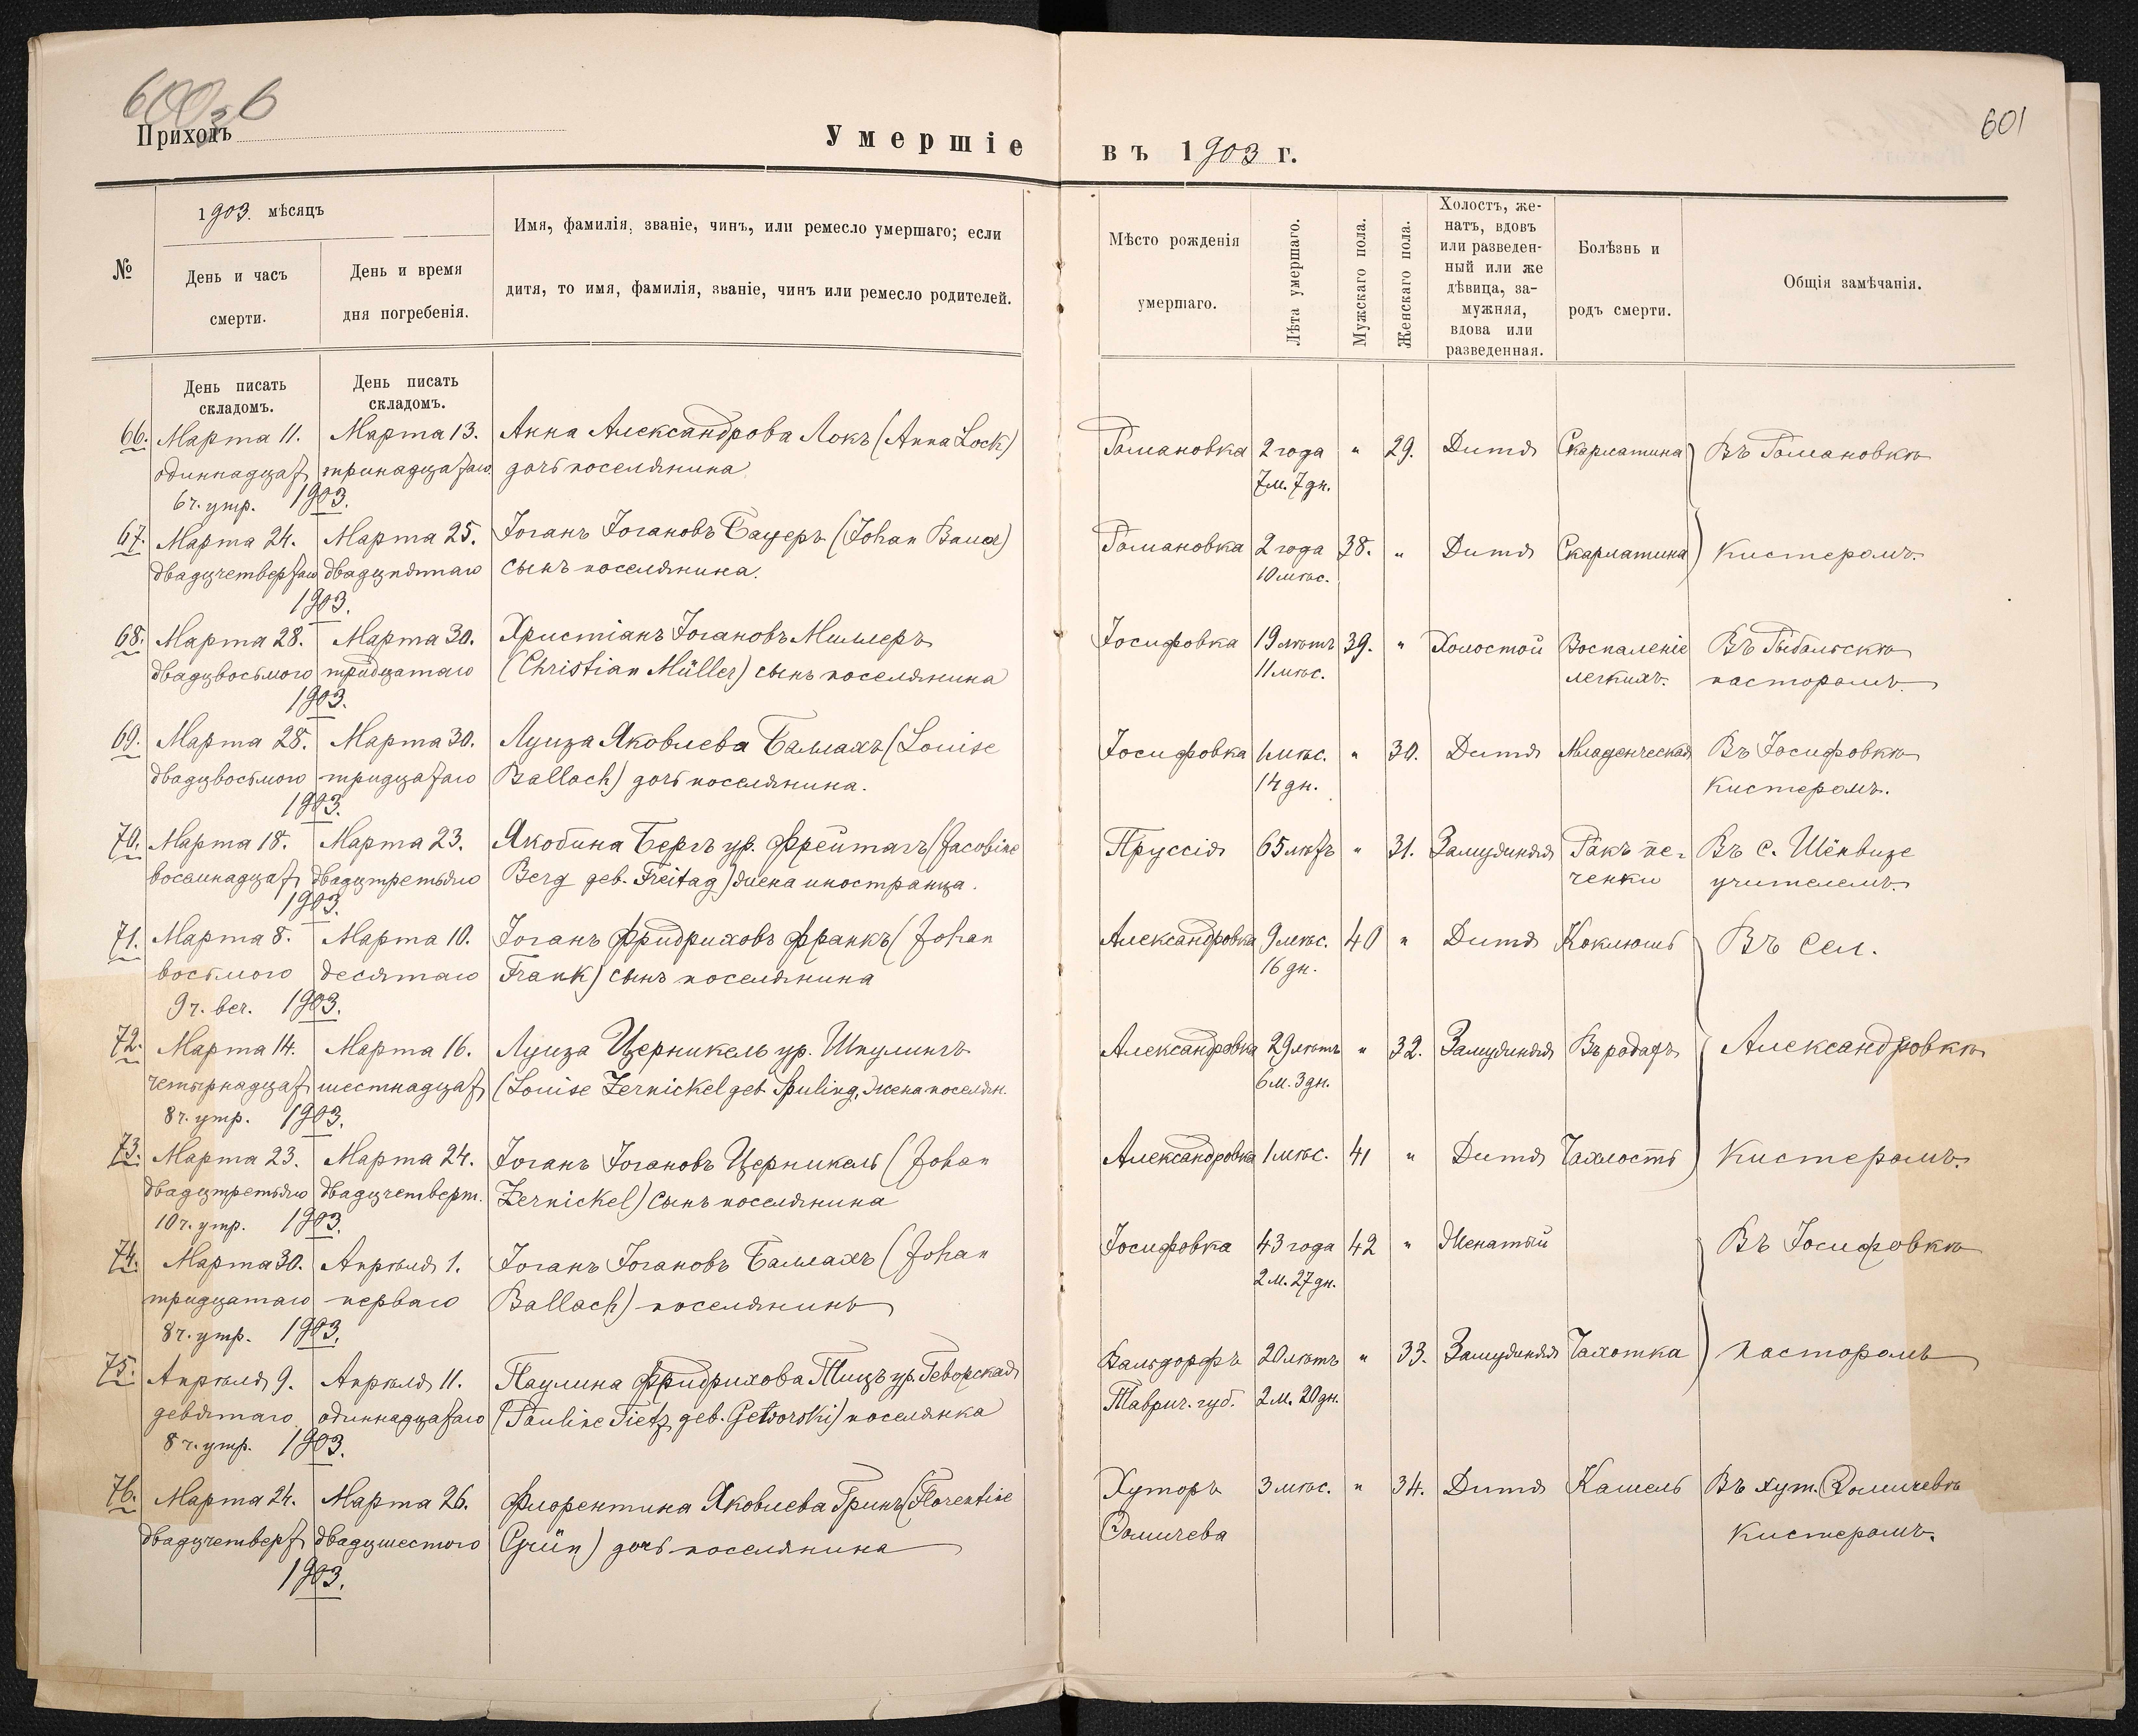 600 об
Приходъ
Умершіе въ 1903 г.
601
№
1903. мѣсяцъ
День и часъ
смерти.
День и время
дня погребенія.
Имя, фамилія, званіе, чинъ, или ремесло умершаго; если
дитя, то имя, фамилія, званіе, чинъ или ремесло родителей.
Мѣсто рожденія
умершаго.
Лѣта умершаго.
Мужскаго пола.
Женскаго пола.
Холостъ, же-
натъ, вдовъ
или разведен-
ный или же
дѣвица, за-
мужняя,
вдова или
разведенная.
Болѣзнь и
родъ смерти.
Общія замѣчанія.
День писать
складомъ.
День писать
складомъ.
66. Марта 11. Марта 13. Анна Александрова Локъ (Anna Lock) Романовка 2 года " 29. Дитя Скарлатина Въ Романовкѣ
одиннадцат тринадцатаго дочь поселянина 7 м. 7 дн.
6 ч. утр. 1903.
67. Марта 24. Марта 25. Іоганъ Іогановъ Бауеръ (Johan Bauer) Романовка 2 года 38. " Дитя Скарлатина Кистеромъ.
двадцчетвертаго двадцпятаго сынъ поселянина. 10 мѣс.
1903.
68. Марта 28. Марта 30. Христіанъ Іогановъ Миллеръ Іосифовка 19 лѣтъ 39. " Холостой Воспаленіе Въ Рыбальскѣ
двадцвосьмого тридцатаго (Christian Müller) сынъ поселянина 11 мѣс. легкихъ. пасторомъ.
1903.
69. Марта 28. Марта 30. Луиза Яковлева Баллахъ (Louise Іосифовка 1 мѣс. " 30. Дитя Младенческая Въ Іосифовкѣ
двадцвосьмого тридцатаго Ballach) дочь поселянина. 14 дн. Кистеромъ.
1903.
70. Марта 18. Марта 23. Якобина Бергъ ур. Фрейтагъ (Jacobine Пруссія 65 лѣтъ " 31. Замужняя Ракъ пе- Въ с. Шёнвизе
восемнадцат двадцтретьяго Berg geb. Freitag) жена иностранца. ченки учителемъ.
1903.
71. Марта 8. Марта 10. Іоганъ Фридриховъ Франкъ (Johan Александровка 9 мѣс. 40 " Дитя Коклюшъ Въ сел.
восьмого десятаго Frank) сынъ поселянина 16 дн.
9 ч. веч. 1903.
72. Марта 14. Марта 16. Луиза Церникель ур. Шпулингъ Александровка 29 лѣтъ " 32. Замужняя Въ родахъ Александровкѣ
четырнадцат шестнадцат (Louise Zernickel geb. Spuling, жена поселян. 6 м. 3 дн.
8 ч. утр. 1903.
73. Марта 23. Марта 24. Іоганъ Іогановъ Церникель (Johan Александровка 1 мѣс. 41 " Дитя Чахлость Кистеромъ.
двадцтретьяго двадцчетверт. Zernickel) сынъ поселянина
10 ч. утр. 1903.
74. Марта 30. Апрѣля 1. Іоганъ Іогановъ Баллахъ (Johan Іосифовка 43 года 42 " Женатый Въ Іосифовкѣ
тридцатаго перваго Ballach) поселянинъ 2 м. 27 дн.
8 ч. утр. 1903.
75. Апрѣля 9. Апрѣля 11. Паулина Фридрихова Тицъ ур. Геворская Вальдорфъ 20 лѣтъ " 33. Замужняя Чахотка пасторомъ
девятаго одиннадцатаго (Pauline Tietz geb. Geworski) поселянка Таврич. губ. 2 м. 20 дн.
8 ч. утр. 1903.
76. Марта 24. Марта 26. Флорентина Яковлева Гринъ (Florentine Хуторъ 3 мѣс. " 34. Дитя Кашель Въ хут.
двадцчетверт двадцшестого Grün) дочь поселянина Кистеромъ.
1903.